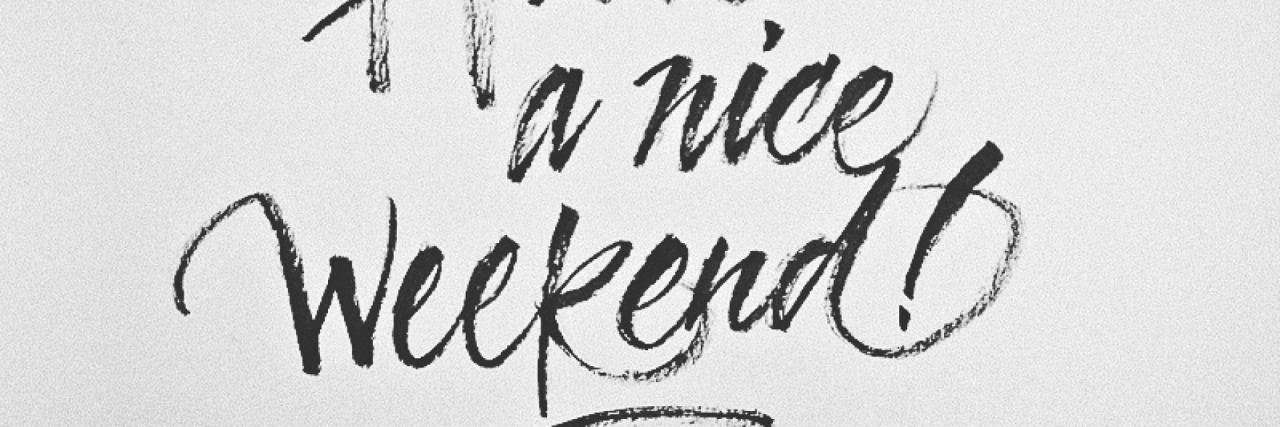 a nice
Weekend!